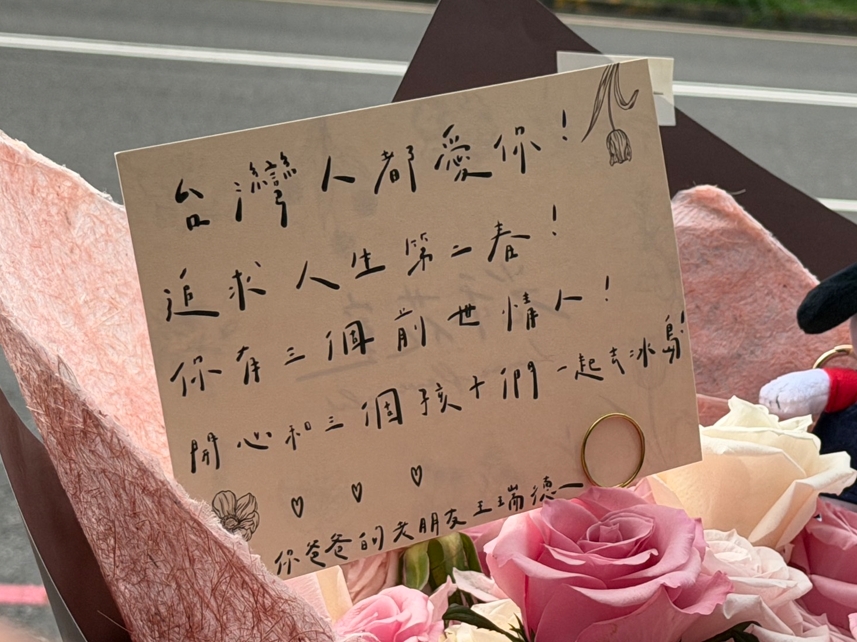 台灣人都愛你！
追求人生第二春！
你有三個前世情人！
開心和三個孩子們一起去冰島！
你爸爸的老朋友王瑞德